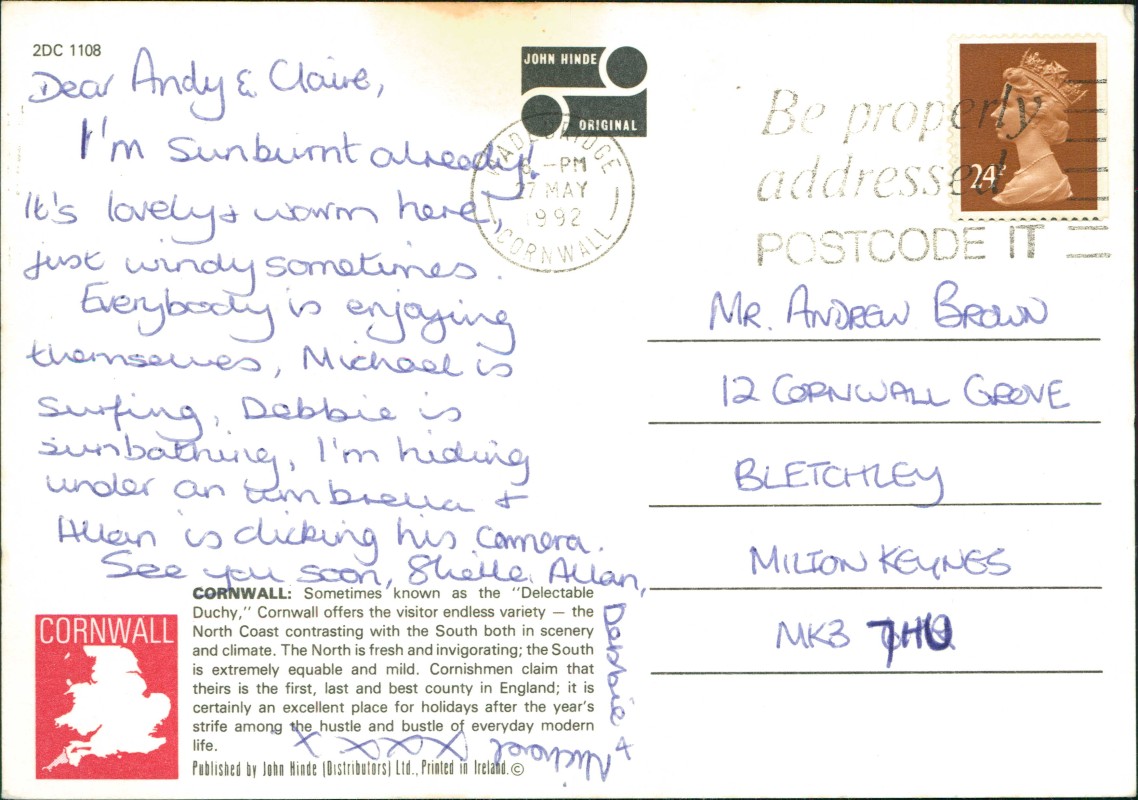 2DC 1108
Dear Andy & Claire,
I'm sunburnt already!
It's lovely & warm here,
just windy sometimes.
Everybody is enjoying
themselves, Michael is
surfing, Debbie is
sunbathing, I'm hiding
under an umbrella &
Allan is clicking his camera.
See you soon, Shelle, Allan,
Debbie &
Michael xxxx x
CORNWALL: Sometimes known as the "Delectable
Duchy," Cornwall offers the visitor endless variety — the
North Coast contrasting with the South both in scenery
and climate. The North is fresh and invigorating; the South
is extremely equable and mild. Cornishmen claim that
theirs is the first, last and best county in England; it is
certainly an excellent place for holidays after the year's
strife among the hustle and bustle of everyday modern
life.
Published by John Hinde (Distributors) Ltd., Printed in Ireland. ©
CORNWALL
JOHN HINDE
ORIGINAL
WADEBRIDGE
-PM
27 MAY
1992
CORNWALL
Be properly
addressed
POSTCODE IT
24P
MR. ANDREW BROWN
12 CORNWALL GROVE
BLETCHLEY
MILTON KEYNES
MK3 7HU